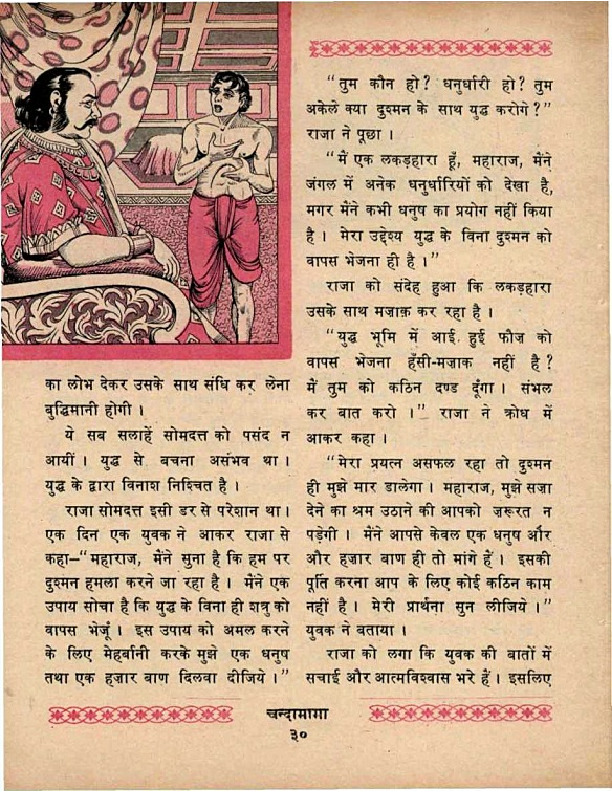 का लोभ देकर उसके साथ संधि कर लेना
बुद्धिमानी होगी ।
ये सब सलाहें सोमदत्त को पसंद न
आयीं । युद्ध से बचना असंभव था ।
युद्ध के द्वारा विनाश निश्चित है ।
राजा सोमदत्त इसी डर से परेशान था ।
एक दिन एक युवक ने आकर राजा से
कहा–“महाराज, मैंने सुना है कि हम पर
दुश्मन हमला करने जा रहा है । मैंने एक
उपाय सोचा है कि युद्ध के बिना ही शत्रु को
वापस भेजूँ । इस उपाय को अमल करने
के लिए मेहर्बानी करके मुझे एक धनुष
तथा एक हज़ार बाण दिलवा दीजिये ।”
“तुम कौन हो? धनुर्धारी हो? तुम
अकेले क्या दुश्मन के साथ युद्ध करोगे?”
राजा ने पूछा ।
“मैं एक लकड़हारा हूँ, महाराज, मैंने
जंगल में अनेक धनुर्धारियों को देखा है,
मगर मैंने कभी धनुष का प्रयोग नहीं किया
है । मेरा उद्देश्य युद्ध के बिना दुश्मन को
वापस भेजना ही है ।”
राजा को संदेह हुआ कि लकड़हारा
उसके साथ मज़ाक़ कर रहा है ।
“युद्ध भूमि में आई हुई फौज को
वापस भेजना हँसी-मज़ाक नहीं है ?
मैं तुम को कठिन दण्ड दूंगा । संभल
कर बात करो ।” राजा ने क्रोध में
आकर कहा ।
“मेरा प्रयत्न असफल रहा तो दुश्मन
ही मुझे मार डालेगा । महाराज, मुझे सज़ा
देने का श्रम उठाने की आपको ज़रूरत न
पड़ेगी । मैंने आपसे केवल एक धनुष और
और हज़ार बाण ही तो मांगे हैं । इसकी
पूर्ति करना आप के लिए कोई कठिन काम
नहीं है । मेरी प्रार्थना सुन लीजिये ।”
युवक ने बताया ।
राजा को लगा कि युवक की बातों में
सचाई और आत्मविश्वास भरे हैं । इसलिए
चन्दामामा
३०